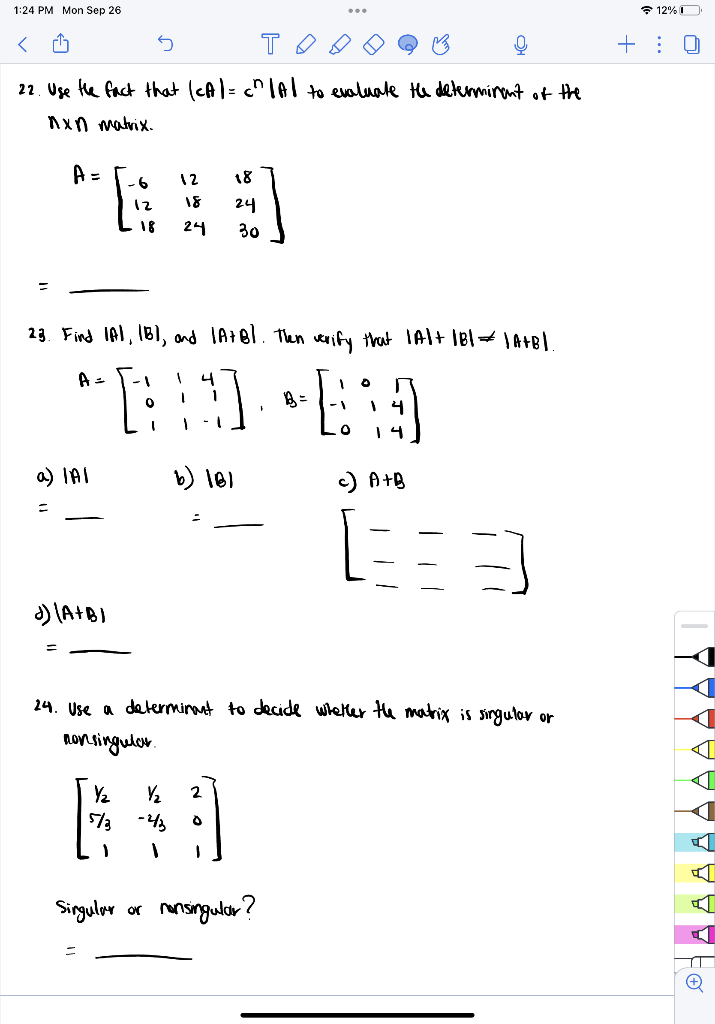 1:24 PM Mon Sep 26
12%
T
22. Use the fact that |cA| = cⁿ |A| to evaluate the determinant of the
nxn matrix.
A = [ -6 12 18
12 18 24
18 24 30 ]
= ____
23. Find |A|, |B|, and |A+B|. Then verify that |A| + |B| ≠ |A+B|.
A = [ -1 1 4 , B = [ 1 0 1
0 1 1 -1 1 4
1 1 -1 ] 0 1 4 ]
a) |A| b) |B| c) A+B
= __ = __ [ _ _ _
_ _ _
_ _ _ ]
d) |A+B|
= ___
24. Use a determinant to decide whether the matrix is singular or
nonsingular.
[ 1/2 1/2 2
5/3 -2/3 0
1 1 1 ]
Singular or nonsingular?
= ____